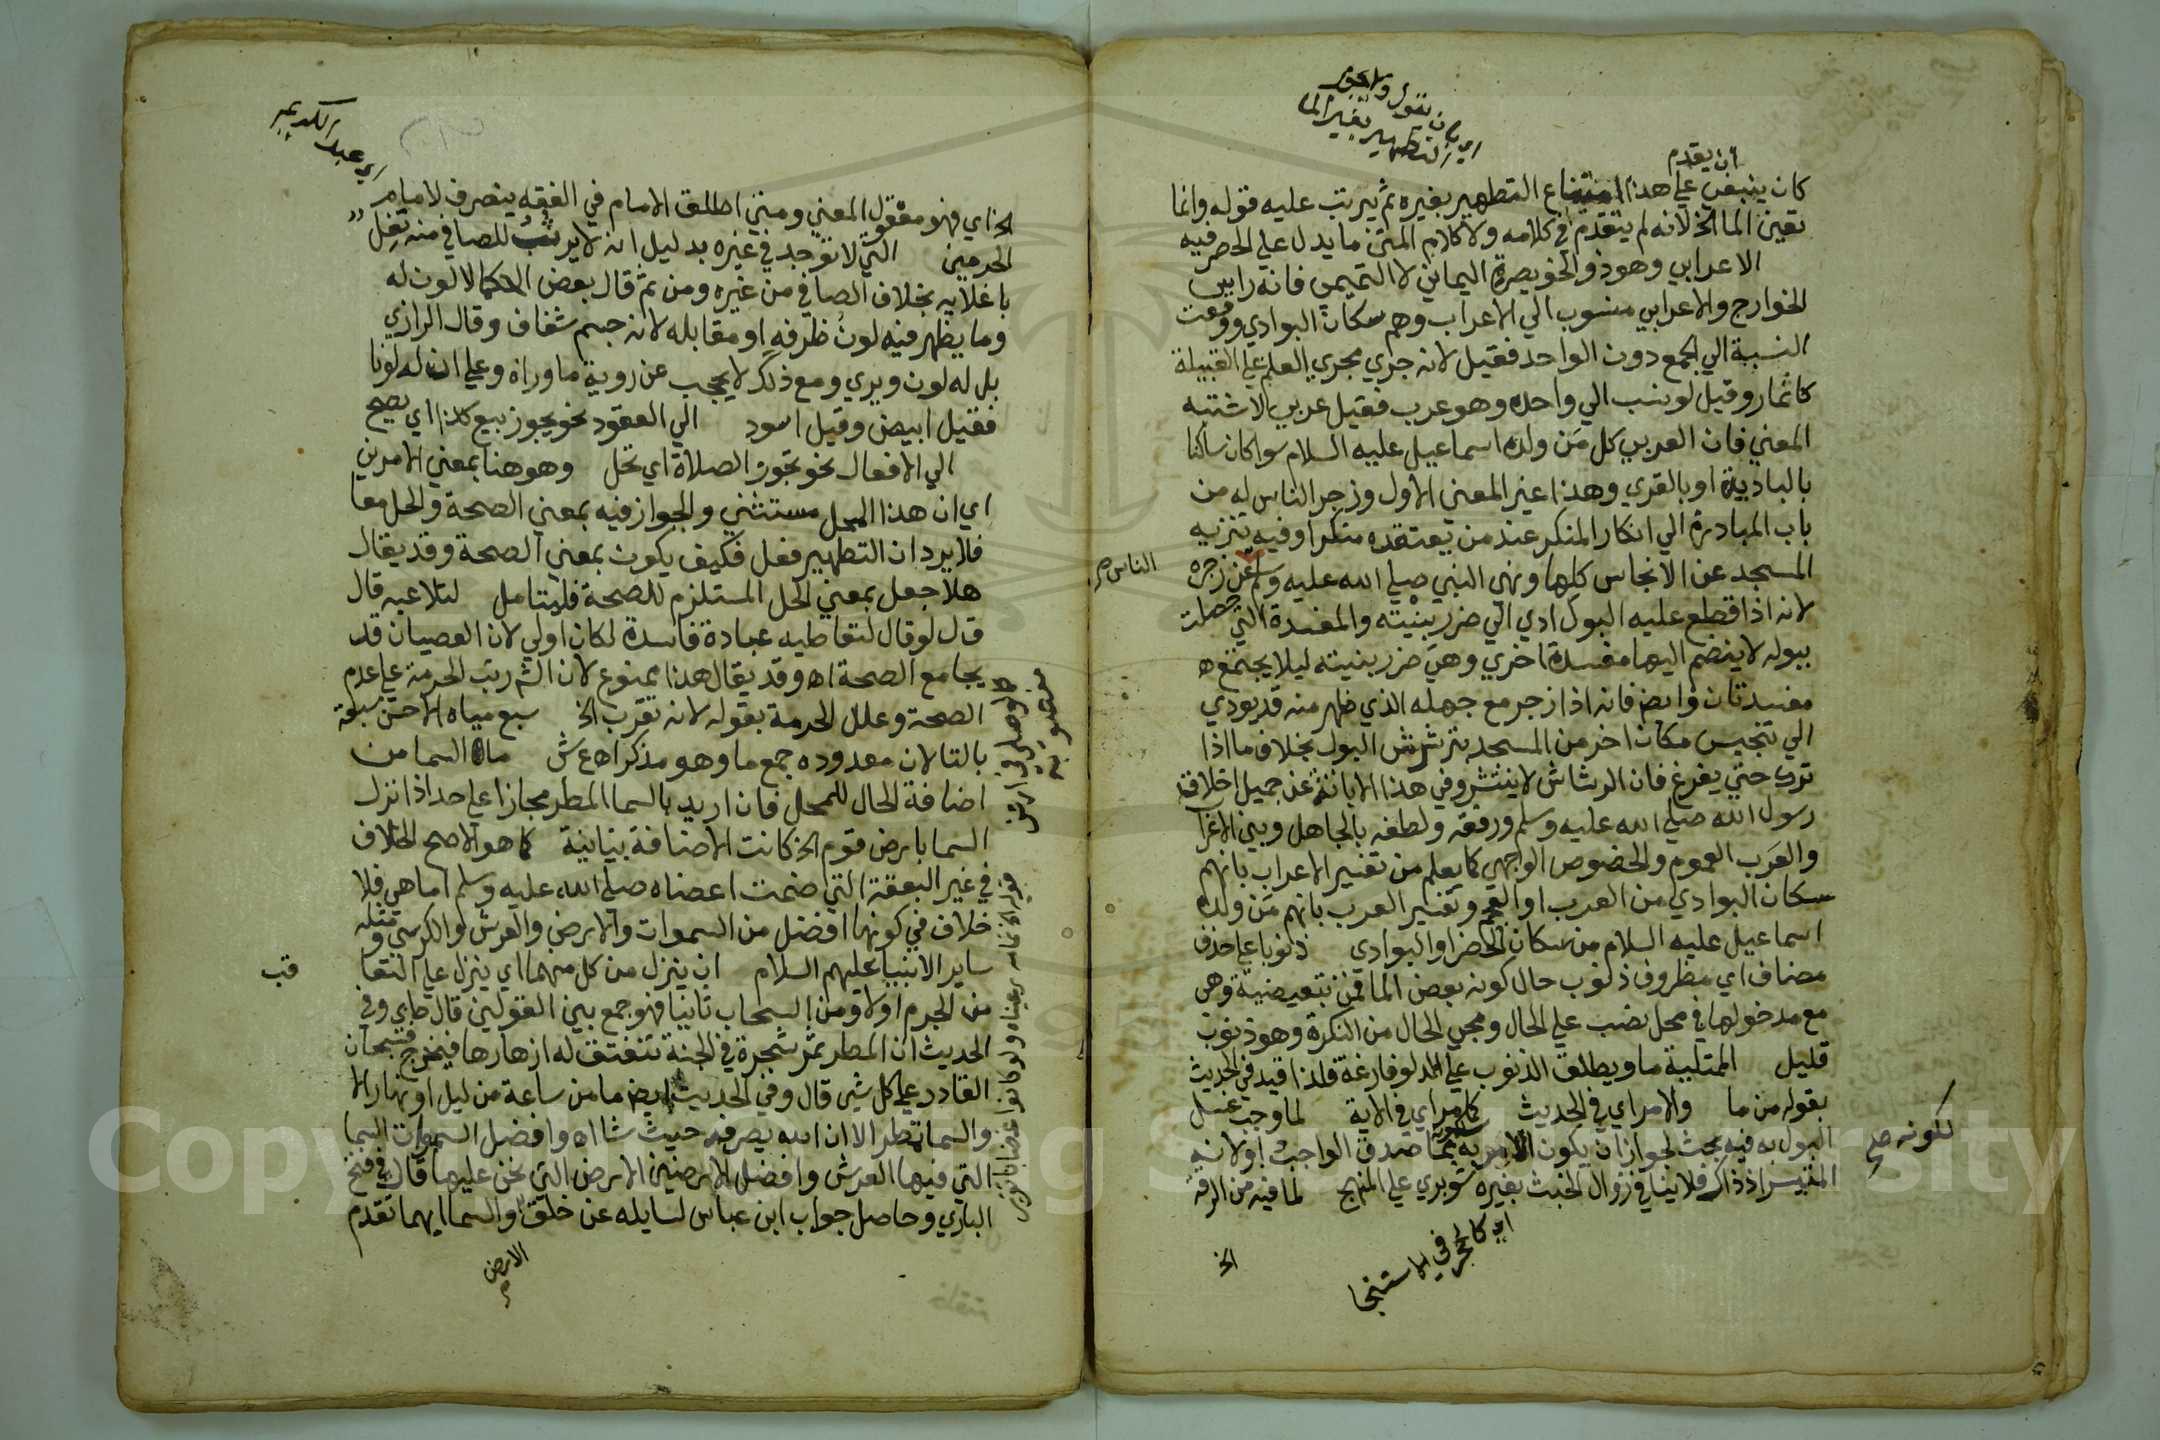 ان يقدم
كان ينبغي علي هذا امتناع التطهير بغيره ثم يرتب عليه قوله وانما
تعين الما الخ لانه لم يتقدم في كلامه ولا كلام المتن ما يدل علي الحصر فيه
الاعرابي وهو ذو الخويصرة اليماني لا التميمي فانه راس
الخوارج والاعرابي منسوب الي الاعراب وهم سكان البوادي ووقعت
النسبة الي الجمع دون الواحد فقيل لانه جري مجري العلم علي القبيلة
كانمار وقيل لو نسب الي واحده وهو عرب فقيل عربي لاشتبه
المعني فان العربي كل من ولده اسماعيل عليه السلام سوا كان ساكنا
بالبادية او بالقري وهذا غير المعني الاول وزجر الناس له من
باب المبادرة الي انكار المنكر عند من يعتقده منكرا وفيه تنزيه
المسجد عن الانجاس كلها ونهي النبي صلي الله عليه وسلم عن زجره
الناس صح
لانه اذا قطع عليه البول ادي الي ضرر بنيته والمفسدة التي حصلت
ببوله لا ينضم اليها مفسدة اخري وهي ضرر بنيته ليلا يجتمع
مفسدتان وايض فانه اذا زجر مع جهله الذي ظهر منه قد يودي
الي تنجيس مكان اخر من المسجد بترشش البول بخلاف ما اذا
ترك حتي يفرغ فان الرشاش لا ينتشر وفي هذا الابانة عن جميل اخلاق
رسول الله صلي الله عليه وسلم ورفقه ولطفه بالجاهل وبين الاعراب
والعرب العموم والخصوص الوجهي كما يعلم من تفسير الاعراب بانهم
سكان البوادي من العرب او العجم وتفسير العرب بانهم من ولده
اسماعيل عليه السلام من سكان الحضر او البوادي ذنوبا علي حذف
مضاف اي مظروف ذنوب حال كونه بعض الما فمن تبعيضية وهي
مع مدخولها في محل نصب علي الحال ومجي الحال من النكرة وهو ذنوب
قليل الممتلية ما ويطلق الذنوب علي الدلو فارغة فلذا قيد في الحديث
بقوله من ما والامر اي في الحديث كما مر اي في الاية لما وجب غسل
البول به فيه بحث لجواز ان يكون الامر به بما صدق الواجب او لانه
لكونه صح
المتيسر اذ ذاك فلا ينافي زوال الخبث بغيره شوبري علي المنهج لما فيه من الرقة
اي كالحجر في الاستنجا
الخ
اي عبد الكريم
الخ اي فهو معقول المعني ومتي اطلق الامام في الفقه ينصرف لامام
الحرمين التي لا توجد في غيره بدليل انه لا يرسب للصافي منه ثفل
باغلايه بخلاف الصافي من غيره ومن ثم قال بعض الحكما لا لون له
وما يظهر فيه لون ظرفه او مقابله لانه جسم شفاف وقال الرازي
بل له لون ويري ومع ذلك لا يحجب عن روية ما وراه وعلي ان له لونا
فقيل ابيض وقيل اسود الي العقود نحو يجوز بيع كذا اي يصح
الي الافعال نحو تجوز الصلاة اي تحل وهو هنا بمعني الامرين
اي ان هذا المحل مستثني والجواز فيه بمعني الصحة والحل معا
فلا يرد ان التطهير فعل فكيف يكون بمعني الصحة وقد يقال
هلا جعل بمعني الحل المستلزم للصحة فليتامل لتلاعبه قال
ق ل لو قال لتعاطيه عبادة فاسدة لكان اولي لان العصيان قد
يجامع الصحة اه وقد يقال هذا ممنوع لان الشم رتب الحرمة علي عدم
الصحة وعلل الحرمة بقوله لانه تقرب الخ سبع مياه الاحسن سبعة
بالتا لان معدوده جمع ما وهو مذكر اه ع ش ماه السما من
اضافة الحال للمحل فان اريد بالسما المطر مجازا علي حد اذا نزل
السما بارض قوم الخ كانت الاضافة بيانية كما هو الاصح الخلاف
في غير البقعة التي ضمت اعضاه صلي الله عليه وسلم اما هي فلا
خلاف في كونها افضل من السموات والارض والعرش والكرسي ومثله
ساير الانبيا عليهم السلام ان ينزل من كل منهما اي ينزل علي التعا
قب
من الجرم اولا ومن السحاب ثانيا فهو جمع بين القولين قال ح اي وفي
الحديث ان المطر ثمر شجرة في الجنة تتفتق له ازهارها فيخرج فسبحان
القادر علي كل شي قال وفي الحديث ايض ما من ساعة من ليل او نهار الا
والسما تمطر الا ان الله يصرفه حيث شا اه وافضل السموات السما
التي فيها العرش وافضل الارضين الارض التي نحن عليها قال في فتح
الباري وحاصل جواب ابن عباس لسايله عن خلق والسما ايهما تقدم
الارض
Copyright © King Saud University